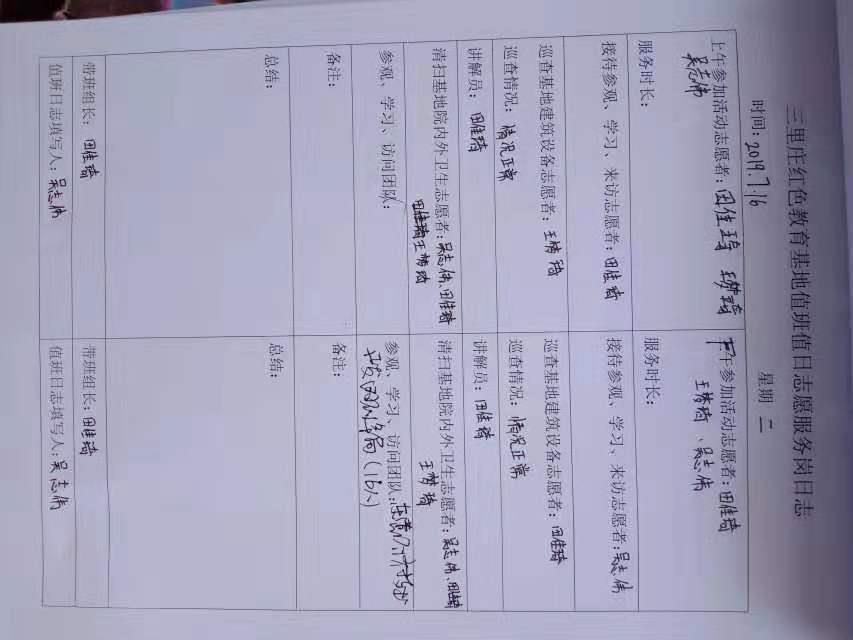 三里庄红色教育基地值班值日志愿服务岗日志
时间：2019.7.16 星期 二
上午参加活动志愿者：田佳琦 王梦琦
吴志伟
服务时长：
接待参观、学习、来访志愿者：田佳琦
巡查基地建筑设备志愿者：王梦琦
巡查情况：情况正常
讲解员：田佳琦
清扫基地院内外卫生志愿者：吴志伟、田佳琦
田佳琦王梦琦
参观、学习、访问团队：
备注：
总结：
带班组长：田佳琦
值班日志填写人：吴志伟
下午参加活动志愿者：田佳琦
王梦琦、吴志伟
服务时长：
接待参观、学习、来访志愿者：吴志伟
巡查基地建筑设备志愿者：田佳琦
巡查情况：情况正常
讲解员：田佳琦
清扫基地院内外卫生志愿者：吴志伟、田佳琦
王梦琦
参观、学习、访问团队：
（16人）
备注：
总结：
带班组长：田佳琦
值班日志填写人：吴志伟